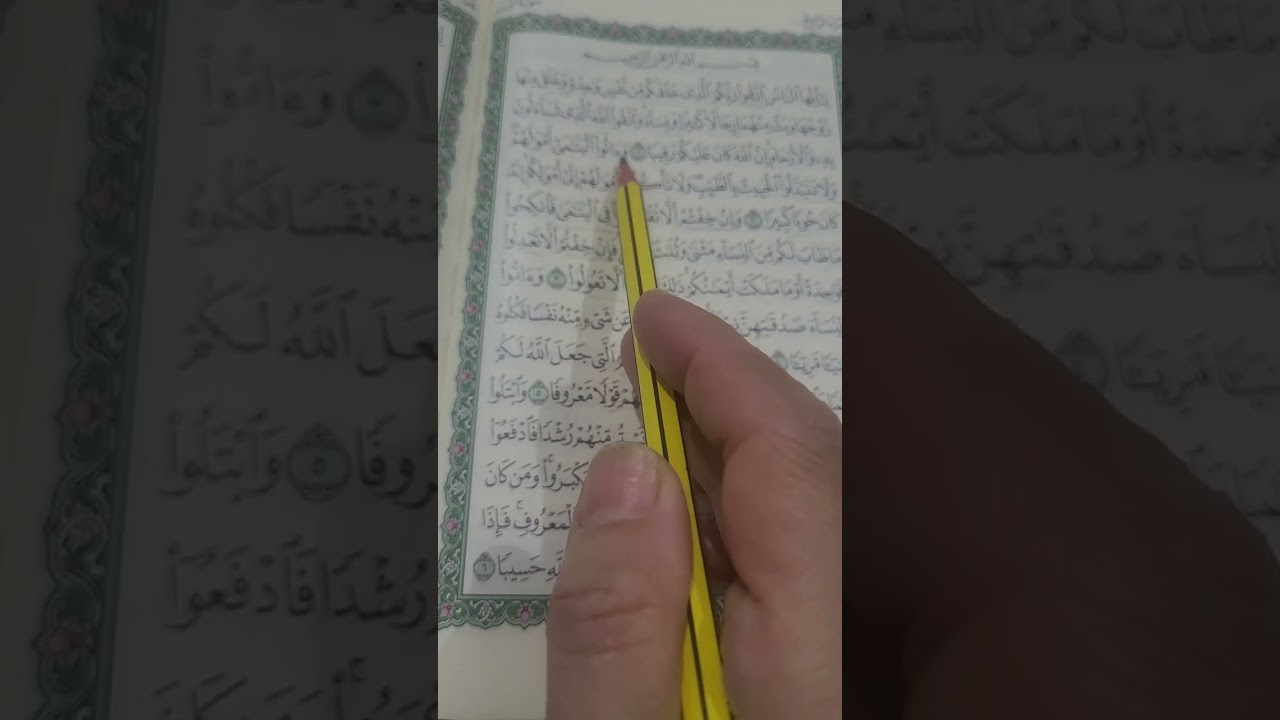 بِسْمِ ٱللَّهِ ٱلرَّحْمَٰنِ ٱلرَّحِيمِ
يَٰٓأَيُّهَا ٱلنَّاسُ ٱتَّقُوا۟ رَبَّكُمُ ٱلَّذِى خَلَقَكُم مِّن نَّفْسٍ وَٰحِدَةٍ وَخَلَقَ مِنْهَا
زَوْجَهَا وَبَثَّ مِنْهُمَا رِجَالًا كَثِيرًا وَنِسَآءً وَٱتَّقُوا۟ ٱللَّهَ ٱلَّذِى تَسَآءَلُونَ
بِهِۦ وَٱلْأَرْحَامَ إِنَّ ٱللَّهَ كَانَ عَلَيْكُمْ رَقِيبًا ١ وَءَاتُوا۟ ٱلْيَتَٰمَىٰٓ أَمْوَٰلَهُمْ
وَلَا تَتَبَدَّلُوا۟ ٱلْخَبِيثَ بِٱلطَّيِّبِ وَلَا أَمْوَٰلَهُمْ إِلَىٰٓ أَمْوَٰلِكُمْ إِنَّهُۥ
كَانَ حُوبًا كَبِيرًا ٢ وَإِنْ خِفْتُمْ أَلَّا فِى ٱلْيَتَٰمَىٰ فَٱنكِحُوا۟
مَا طَابَ لَكُم مِّنَ ٱلنِّسَآءِ مَثْنَىٰ وَثُلَٰثَ فَإِنْ خِفْتُمْ أَلَّا تَعْدِلُوا۟
فَوَٰحِدَةً أَوْ مَا مَلَكَتْ أَيْمَٰنُكُمْ ذَٰلِكَ أَلَّا تَعُولُوا۟ ٣ وَءَاتُوا۟
ٱلنِّسَآءَ صَدُقَٰتِهِنَّ عَن شَىْءٍ مِّنْهُ نَفْسًا فَكُلُوهُ
هَنِيٓـًٔا مَّرِيٓـًٔا ٤ ٱلَّتِى جَعَلَ ٱللَّهُ لَكُمْ
لَهُمْ قَوْلًا مَّعْرُوفًا ٥ وَٱبْتَلُوا۟
مِّنْهُمْ رُشْدًا فَٱدْفَعُوٓا۟
يَكْبَرُوا۟ وَمَن كَانَ
بِٱلْمَعْرُوفِ فَإِذَا
حَسِيبًا ٦